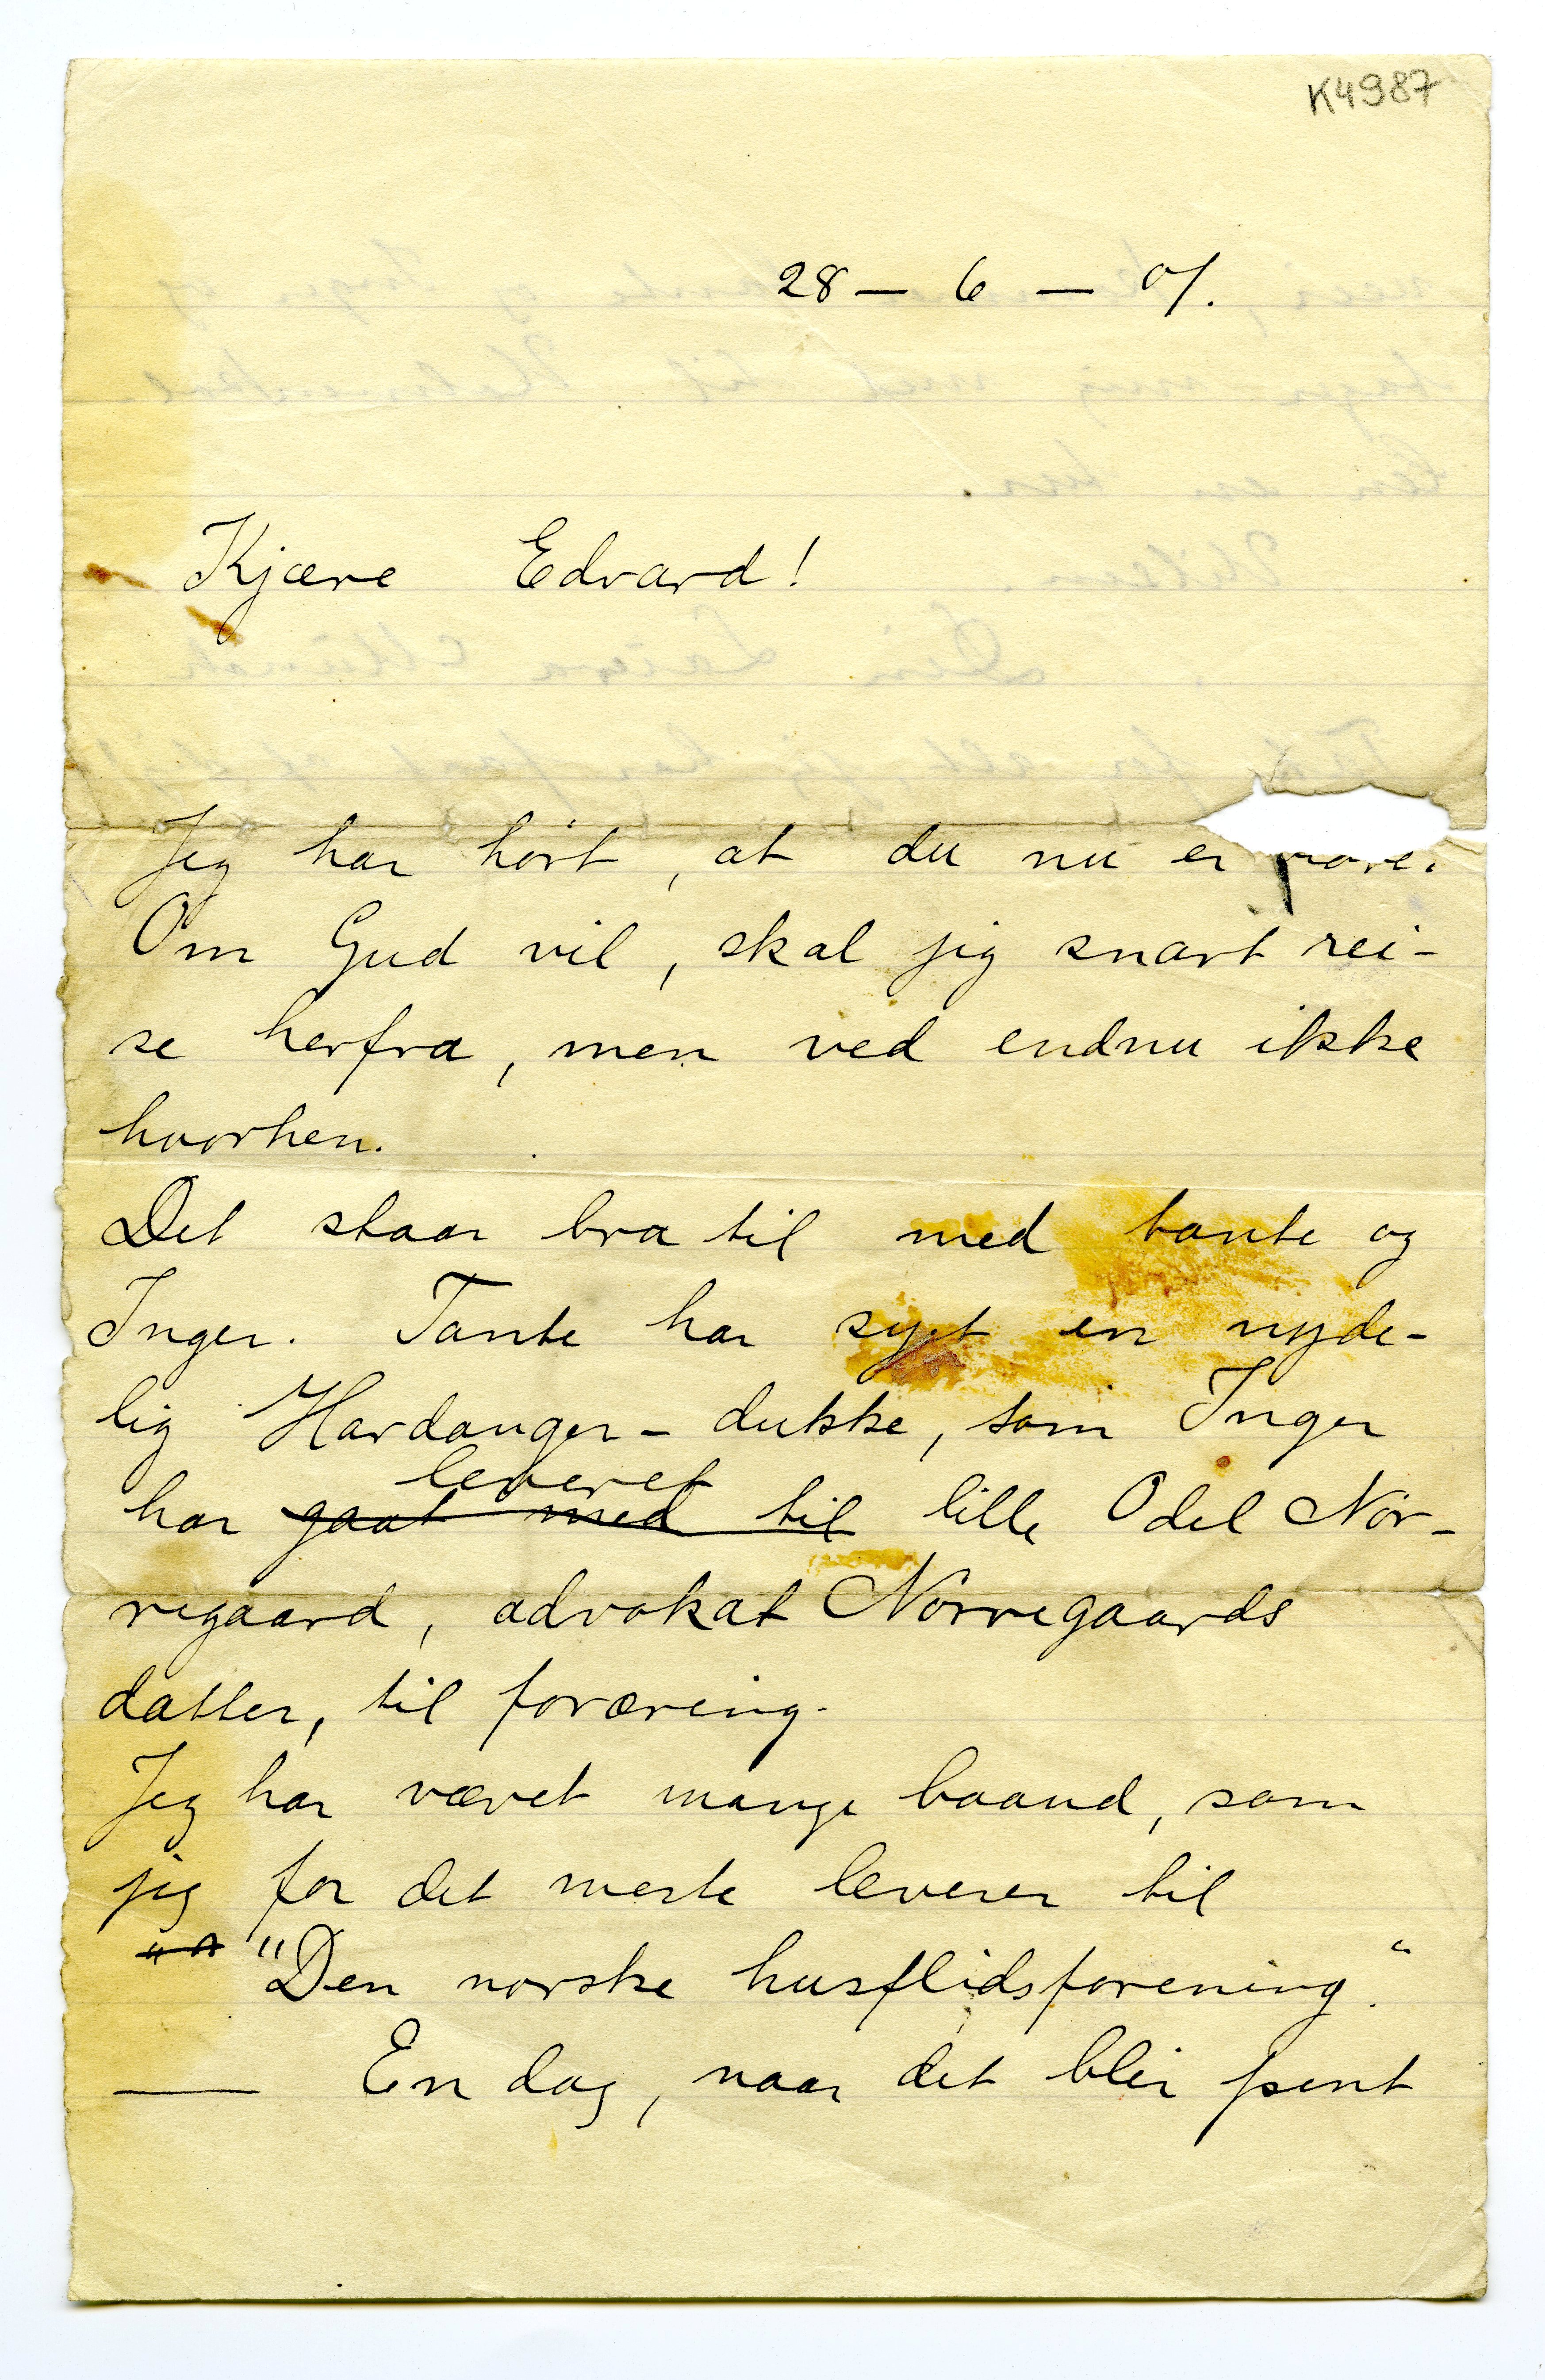 K4987
28 – 6 – 01.
Kjære Edvard!
Jeg har hørt, at du nu er
Om Gud vil, skal jeg snart rei-
se herfra, men ved endnu ikke
hvorhen.
Det staar bra til med tante og
Inger. Tante har syet en nyde-
lig Hardanger-dukke, som Inger
leveret
har gaat med til lille Odel Nør-
regaard, advokat Nørregaards
datter, til foræring.
Jeg har vævet mange baand, som
jeg for det meste leverer til
"Den norske husflidsforening."
— En dag, naar det blir pent